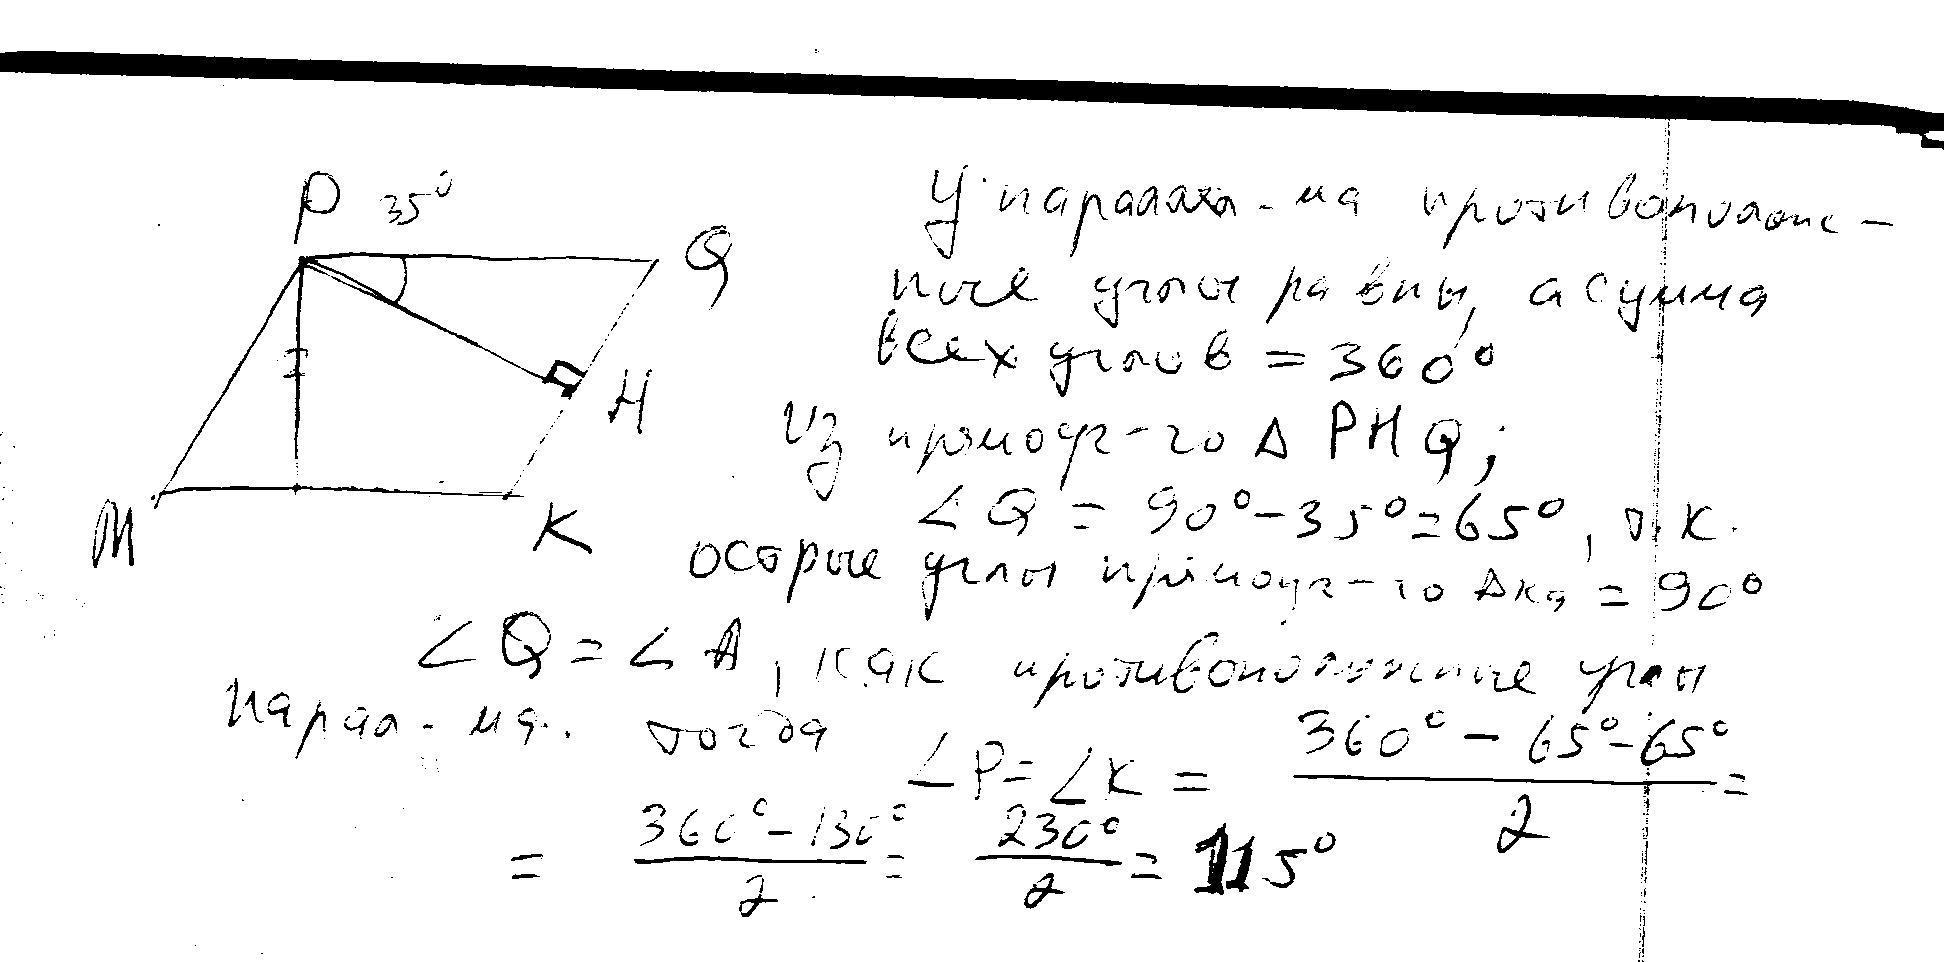 P 35°
Q
H
M
K
У паралел-ма противополож-
ные углы равны, а сумма
всех углов = 360°
Из прямоуг-го Δ PHQ;
∠Q = 90° - 35° = 65°, т.к.
острые углы прямоуг-го Δка = 90°
∠Q = ∠A, как противоположные углы
парал-ма. тогда
∠P = ∠K = (360° - 65° - 65°) / 2 =
= (360° - 130°) / 2 = 230° / 2 = 115°